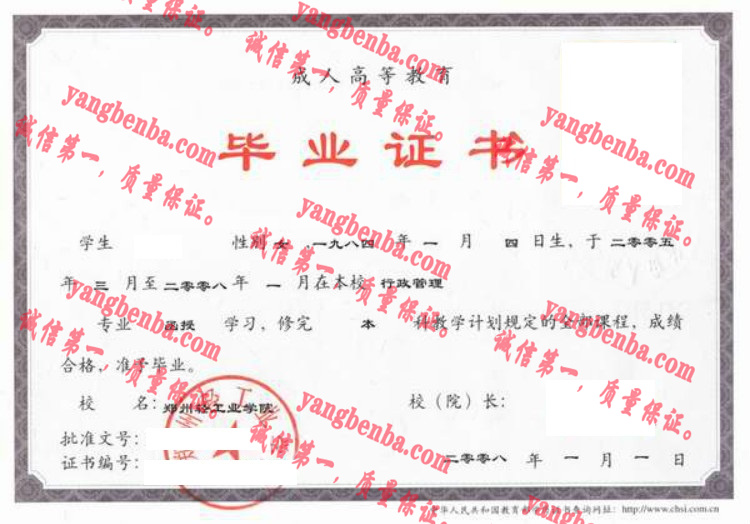 成人高等教育
毕业证书
学生 性别 女 ,一九八四 年 一 月 四 日生,于 二〇〇五
年 三 月至 二〇〇八 年 一 月在本校 行政管理
专业 函授 学习,修完 本 科教学计划规定的全部课程,成绩
合格,准予毕业。
校 名: 郑州轻工业学院 校(院)长:
批准文号:
证书编号: 二〇〇八 年 一 月 一 日
中华人民共和国教育部学历证书查询网址: http://www.chsi.com.cn
yangbenba.com
诚信第一,质量保证。
yangbenba.com
诚信第一,质量保证。
yangbenba.com
诚信第一,质量保证。
yangbenba.com
诚信第一,质量保证。
yangbenba.com
诚信第一,质量保证。
yangbenba.com
诚信第一,质量保证。
yangbenba.com
诚信第一,质量保证。
yangbenba.com
诚信第一,质量保证。